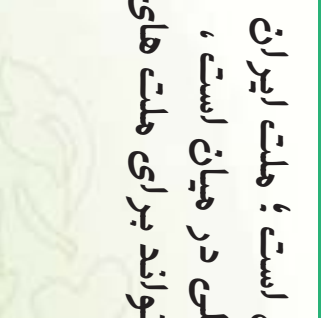 است؛ ملت ایران
لی در میان است،
تواند برای ملت های